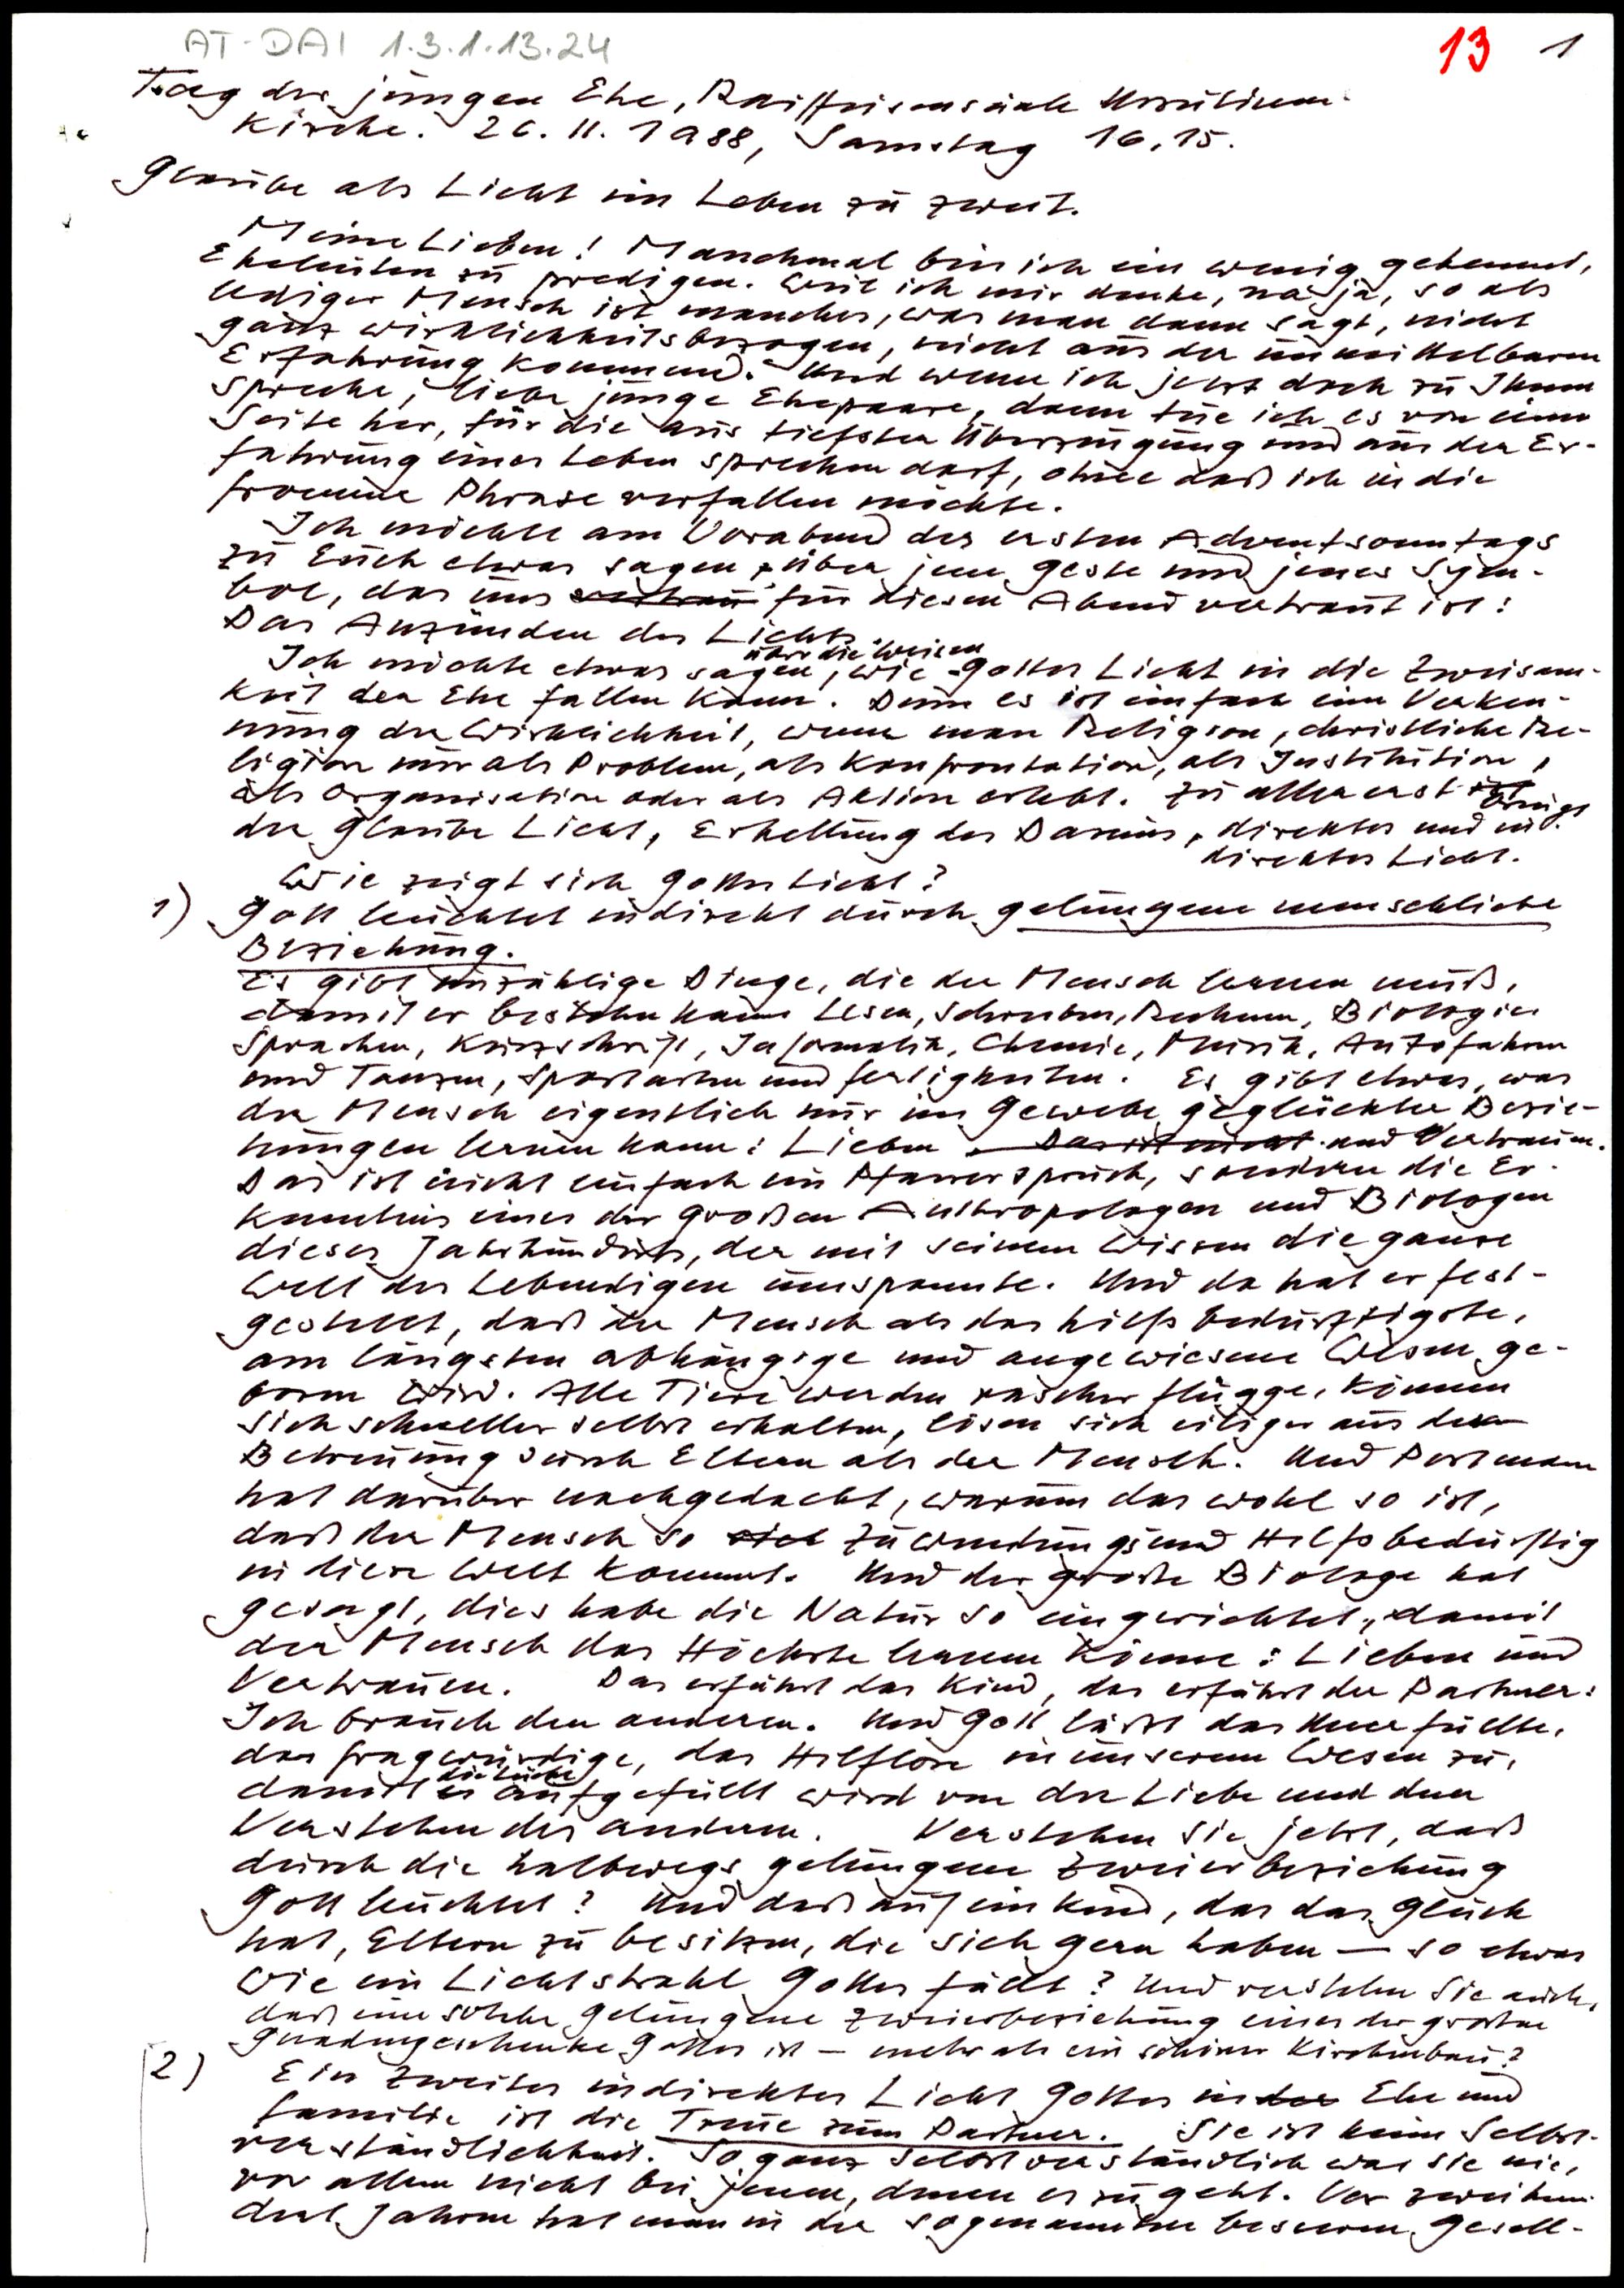 AT-DAI 1.3.1.13.24
13 1
Tag der jungen Ehe, Raiffeisensäale Ursulinen-
kirche. 26. 11. 1988, Samstag 16.15.
Glaube als Licht im Leben zu zweit.
Meine Lieben! Manchmal bin ich ein wenig gehemmt,
Eheleuten zu predigen. Weil ich mir denke, na ja, so als
lediger Mensch ist manches, was man dann sagt, nicht
ganz wirklichkeitsbezogen, nicht aus der unmittelbaren
Erfahrung kommend. Und wenn ich jetzt doch zu Ihnen
spreche, liebe junge Ehepaare, dann tue ich es von einer
Seite her, für die aus tiefster Überzeugung und aus der Er-
fahrung eines Leben sprechen darf, ohne daß ich in die
fromme Phrase verfallen möchte.
Ich möchte am Vorabend des ersten Adventsonntags
zu Euch etwas sagen über jene Geste und jenes Sym-
bol, das uns vertraut für diesen Abend vertraut ist:
Das Anzünden des Lichts.
über die Weisen
Ich möchte etwas sagen, wie Gottes Licht in die Zweisam-
keit der Ehe fallen kann. Denn es ist einfach eine Verken-
nung der Wirklichkeit, wenn man Religion, christliche Re-
ligion nur als Problem, als Konfrontation, als Institution,
als Organisation oder als Aktion erlebt. Zu allererst ist bringt
der Glaube Licht, Erhellung des Daseins, direktes und in-
direktes Licht.
Wie zeigt sich Gottes Licht?
1) Gott leuchtet indirekt durch gelungene menschliche
Beziehung.
Es gibt unzählige Dinge, die der Mensch lernen muß,
damit er bestehn kann Lesen, Schreiben, Rechnen, Biologie
Sprachen, Kurzschrift, Informatik, Chemie, Musik, Autofahren
und Tanzen, Sportarten und Fertigkeiten. Es gibt etwas, was
der Mensch eigentlich nur im Gewebe geglückter Bezie-
hungen lernen kann: Lieben Das ist nicht und Vertrauen.
Das ist nicht einfach ein Pfarrerspruch, sondern die Er-
kenntnis eines der großen Anthropologen und Biologen
dieses Jahrhunderts, der mit seinem Wissen die ganze
Welt des Lebendigen umspannte. Und da hat er fest-
gestellt, daß der Mensch als das hilfsbedürftigste,
am längsten abhängige und angewiesene Wesen ge-
boren wird. Alle Tiere werden rascher flügge, können
sich schneller selbst erhalten, lösen sich eiliger aus der
Betreuung durch Eltern als der Mensch. Und Portmann
hat darüber nachgedacht, warum das wohl so ist,
daß der Mensch so viel zuwendungs und Hilfsbedürftig
in diese Welt kommt. Und der große Biologe hat
gesagt, dies habe die Natur so eingerichtet, damit
der Mensch das Höchste lernen könne: Lieben und
Vertrauen. Das erfährt das Kind, das erfährt der Partner:
Ich brauch den anderen. Und Gott läßt das Unerfüllte,
das fragwürdige, das Hilflose in unserem Wesen zu,
die Lücke
damit es aufgefüllt wird von der Liebe und dem
Verstehen des anderen. Verstehen Sie jetzt, daß
durch die halbwegs gelungene Zweierbeziehung
Gott leuchtet? Und daß auf ein Kind, das das Glück
hat, Eltern zu besitzen, die sich gern haben — so etwas
wie ein Lichtstrahl Gottes fällt? Und verstehn Sie auch,
daß eine solche gelungene Zweierbeziehung eines der großen
Gnadengeschenke Gottes ist — mehr als ein schöner Kirchenbau?
2) Ein zweites indirektes Licht Gottes in der Ehe und
Familie ist die Treue zum Partner. Sie ist keine Selbst-
verständlichkeit. So ganz selbstverständlich war sie nie,
vor allem nicht bei jenen, denen es zu gut geht. Vor zweihun-
dert Jahren hat man in der sogenannten besseren Gesell-